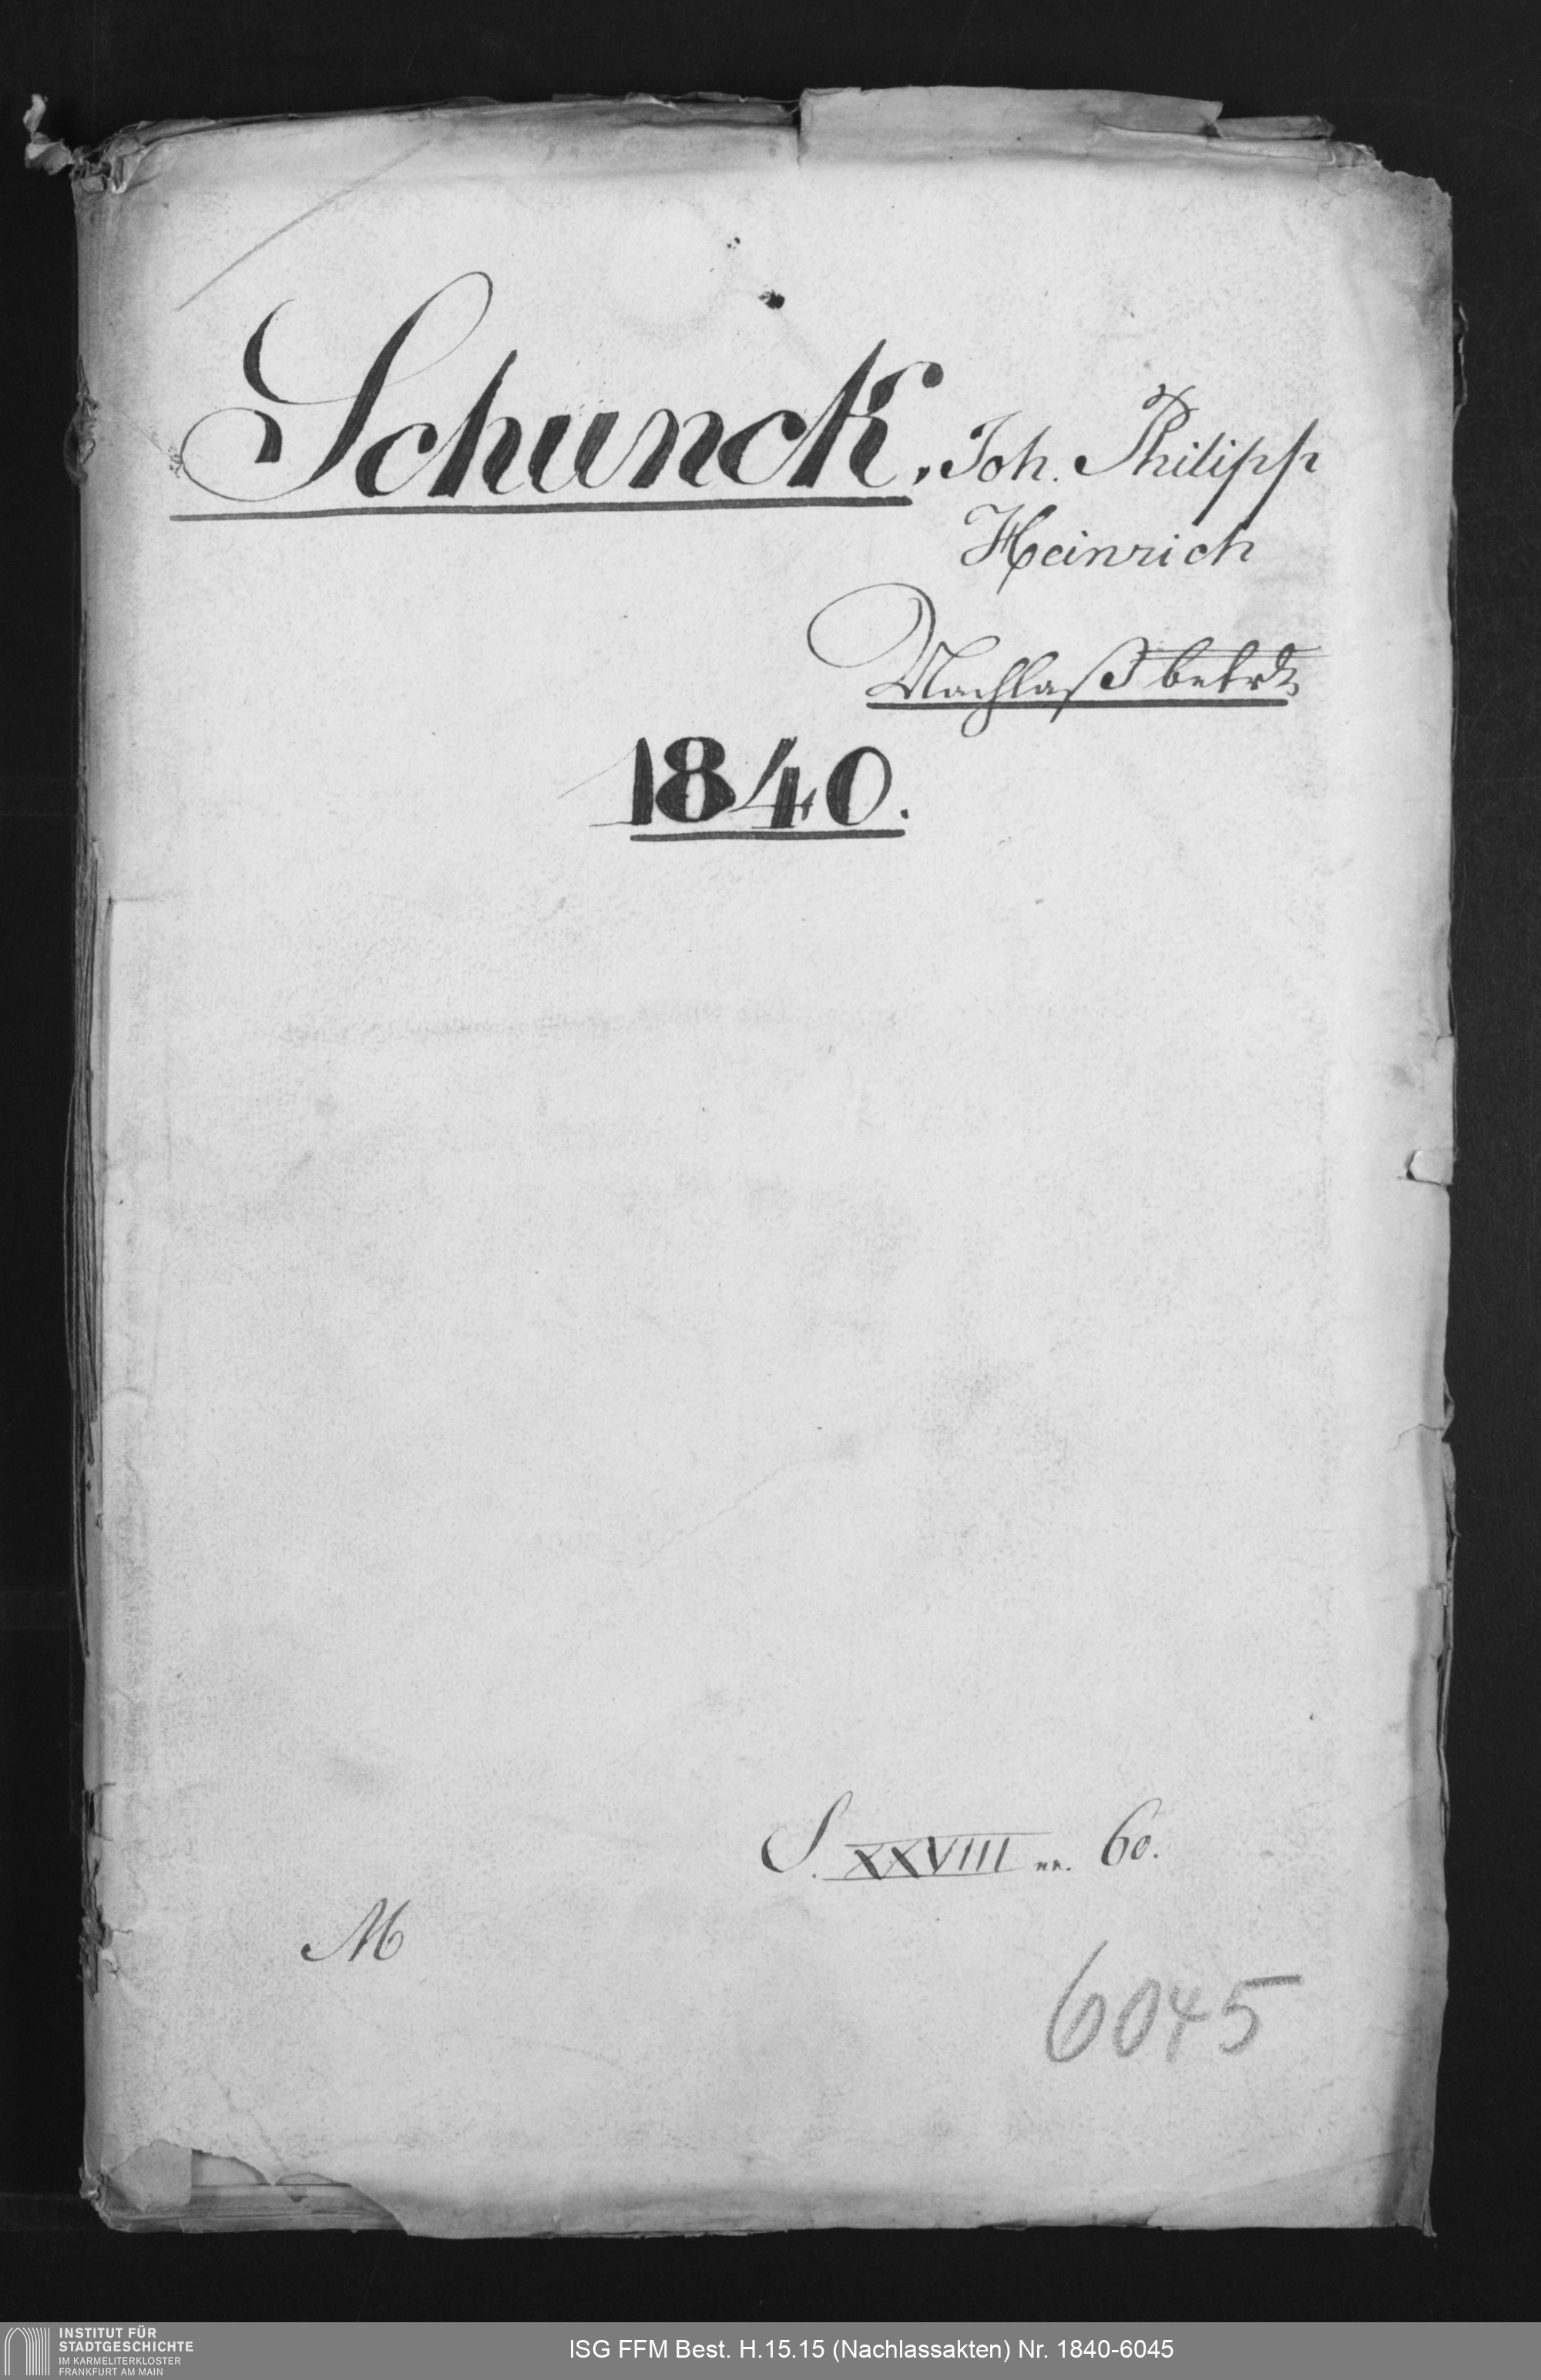 Schunck, Joh. Philipp
Heinrich
Nachlaß betr.
1840.
S. XXVIII nr. 60.
M
6045
INSTITUT FÜR
STADTGESCHICHTE
IM KARMELITERKLOSTER
FRANKFURT AM MAIN
ISG FFM Best. H.15.15 (Nachlassakten) Nr. 1840-6045